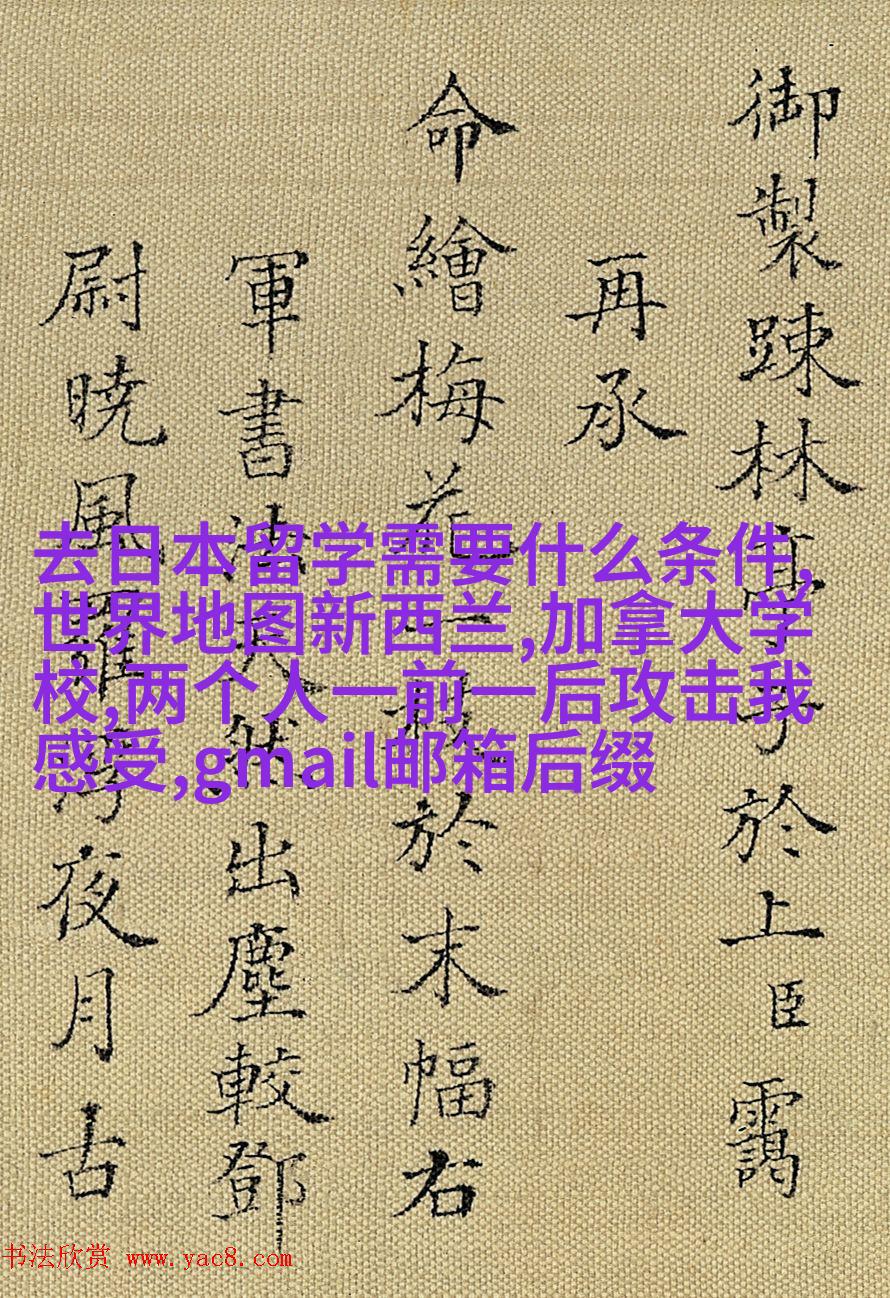 御製踈林亭子於上臣靄
再承
命繪梅花一枝於末幅右
軍書法天然出塵較鄧
尉暁風羅浮夜月古
去日本留学需要什么条件,
世界地图新西兰,加拿大学
校,两个人一前一后攻击我
感受,gmail邮箱后缀
书法欣赏 www.yac8.com